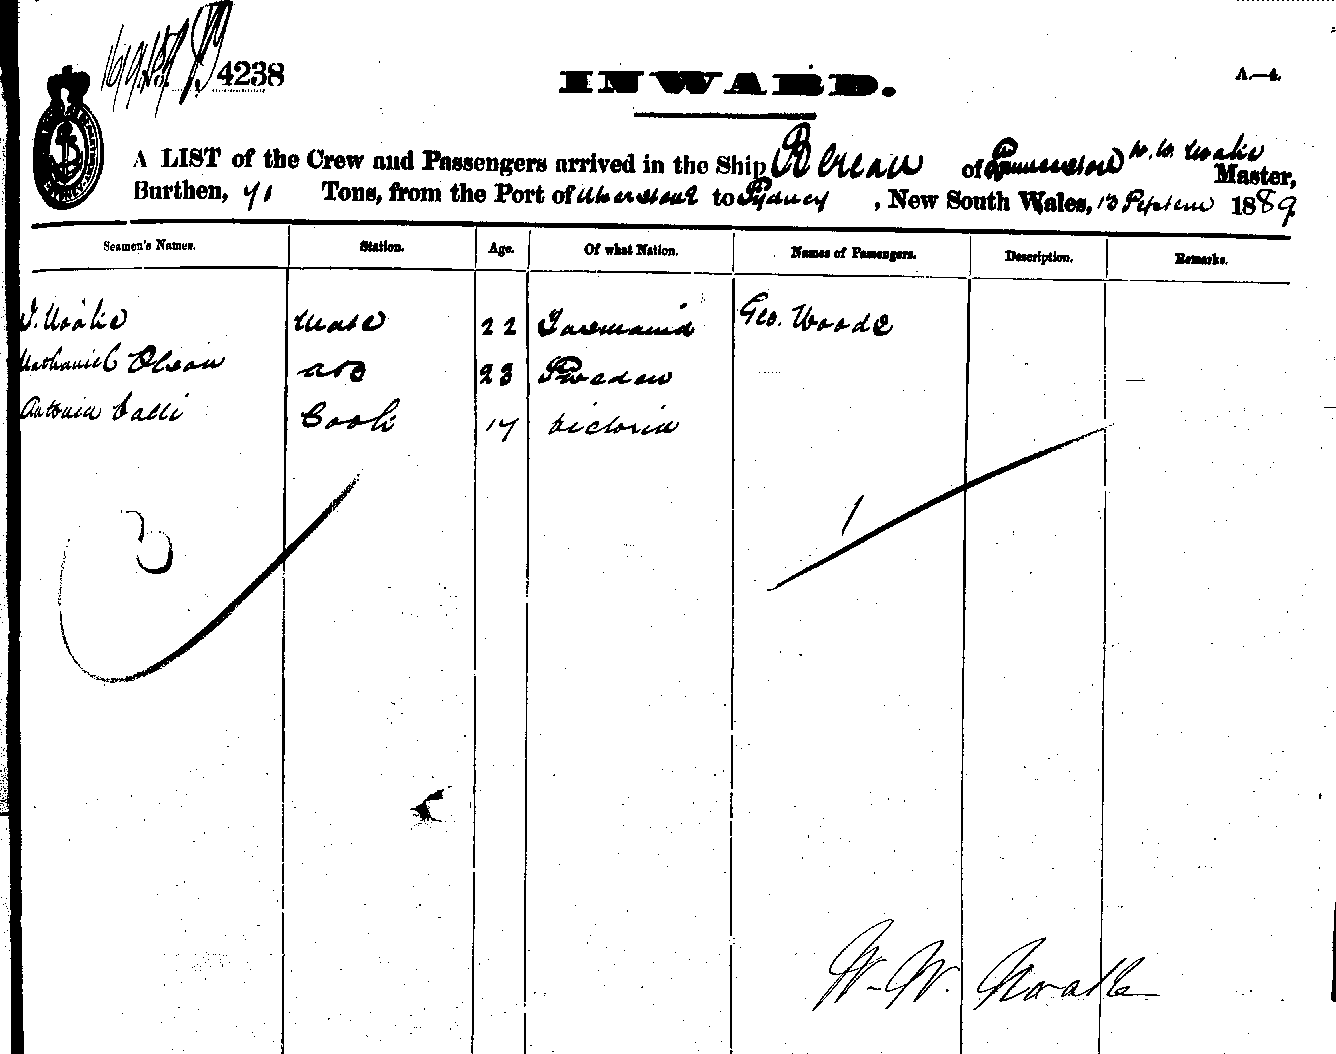 4238
INWARD.
A.—4.
A LIST of the Crew and Passengers arrived in the Ship of W. W. Master,
Burthen, 71 Tons, from the Port of to Sydney, New South Wales, 13 1889
Seamen's Names. Station. Age. Of what Nation. Names of Passengers. Description. Remarks.
J. Mate 22 Tasmania Geo. Woods
Nathaniel Olson AB 23 Sweden
Antonia Calli Cook 17 Victoria
3
1
W. W.